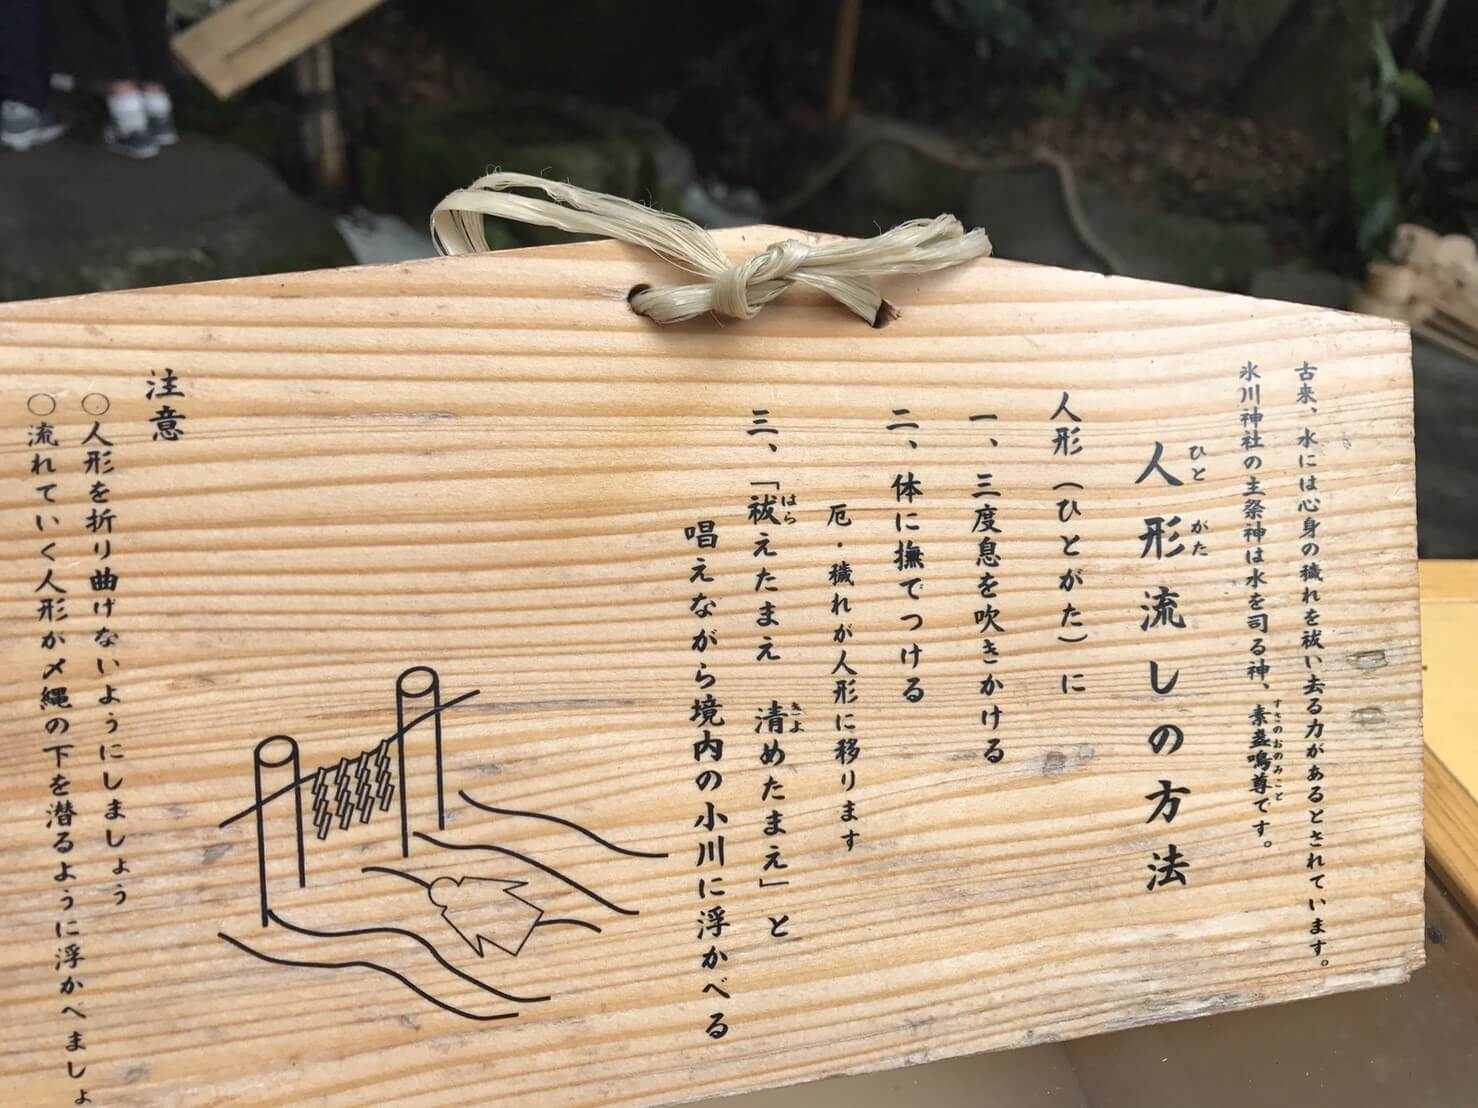 古来、水には心身の穢れを祓い去る力があるとされています。
氷川神社の主祭神は水を司る神、素盞鳴尊です。
すさのおのみこと
人形流しの方法
ひと がた
人形（ひとがた）に
一、三度息を吹きかける
二、体に撫でつける
厄・穢れが人形に移ります
三、「祓えたまえ 清めたまえ」と
はら きよ
唱えながら境内の小川に浮かべる
注意
○人形を折り曲げないようにしましょう
○流れていく人形が〆縄の下を潜るように浮かべましょ